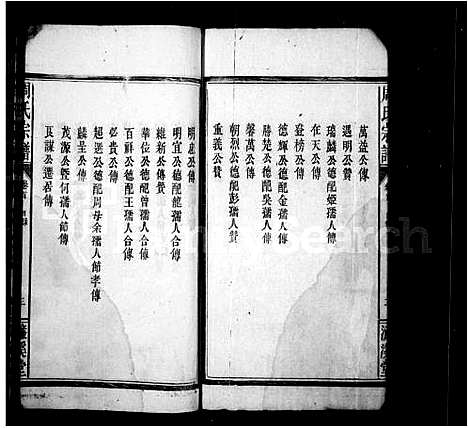 周氏宗譜
萬益公傳
遇明公贊
瑞麟公德配姬孺人傳
在天公傳
登榜公傳
德輝公德配金孺人傳
勝楚公德配吳孺人傳
馨萬公傳
朝烈公德配彭孺人贊
重義公贊
明建公傳
明宜公德配龍孺人合傳
維新公傳贊
華位公德配曾孺人合傳
百祥公德配王孺人合傳
必貴公傳
超選公德配周母余孺人節孝傳
麟呈公傳
茂源公暨何孺人節傳
周氏宗譜